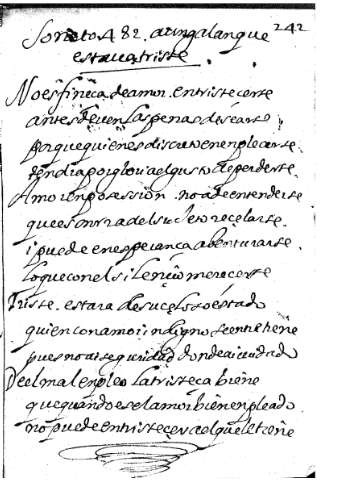 242
Soneto 482. a un galan que
estava triste
No es fineça de amor. entristecerse
antes deven las penas desearse
porque quien es discreto en enplearse.
tendra por gloria el gusto de perderse.
Amor en posession. no a de entenderse
que es onra del sujeto recelarse.
i puede en esperança abenturarse.
lo que con el silençio merecerse
Triste. estara de su celoso estado
quien con amor indigno se entretiene
pues no ai seguridad donde ai cuidado
De el mal enpleo la tristeça biene
que quando es el amor bien enpleado
no puede entristecer a el que le tiene